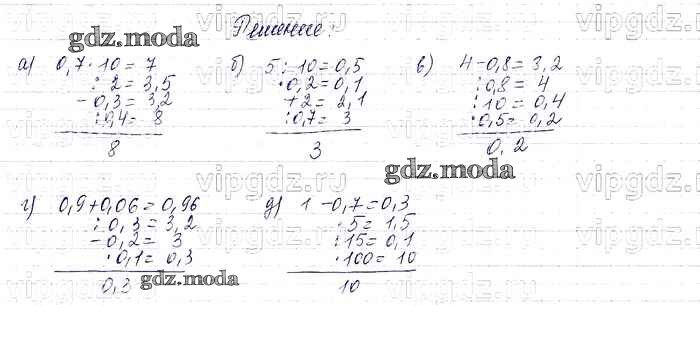 Решение:
а) 0,7·10=7
:2=3,5
-0,3=3,2
:0,4=8
8
б) 5:10=0,5
·0,2=0,1
+2=2,1
:0,7=3
3
в) 4-0,8=3,2
:0,8=4
:10=0,4
·0,5=0,2
0,2
г) 0,9+0,06=0,96
:0,3=3,2
-0,2=3
·0,1=0,3
0,3
д) 1-0,7=0,3
·5=1,5
:15=0,1
·100=10
10
gdz.moda
gdz.moda
gdz.moda
vipgdz.ru